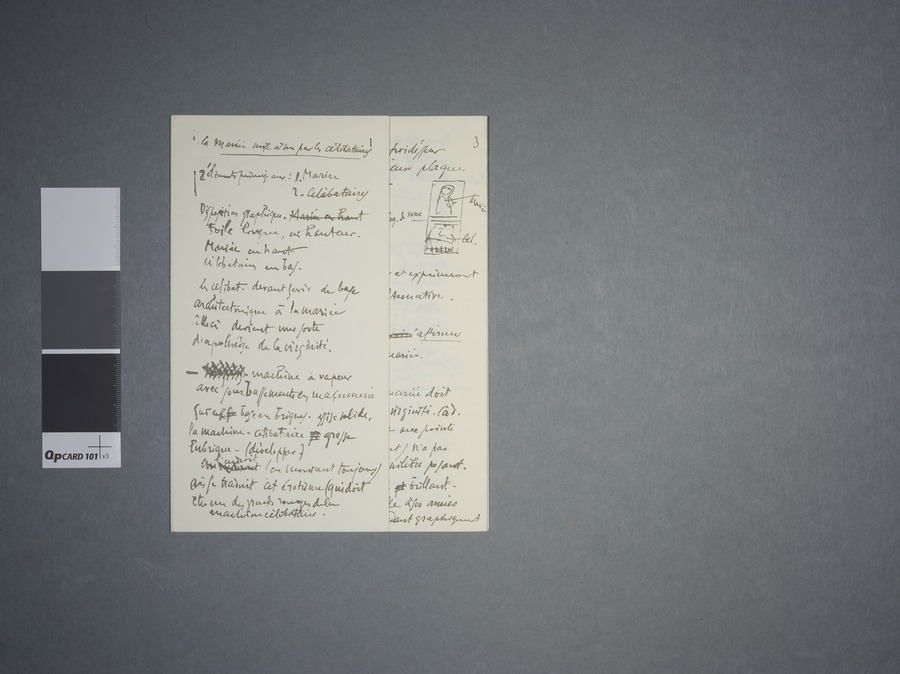 la Mariée mise à nu par les célibataires
2 éléments principaux : 1. Mariée
2. Célibataires
Disposition graphique. Mariée en haut
toile longue, en hauteur.
Mariée en haut
célibataires en bas.
Les célibat. devant servir de base
architectonique à la mariée
celle-ci devient une sorte
d'apothéose de la virginité.
— machine à vapeur
avec soubassements en maçonnerie
Sur cette base en briques. assise solide,
la machine-célibataire grasse
lubrique - (développer)
(en montant toujours)
où se traduit cet érotisme (qui doit
être un des grands rouages de la
machine célibataire.
3
plaques
de verre
Mariée
Cel.
et exprimeront
affirmer
mariée.
mariée doit
virginité. Càd.
avec pointe
n'a pas
brillant -
à ses amies
graphiquement
QpCARD 101 v3